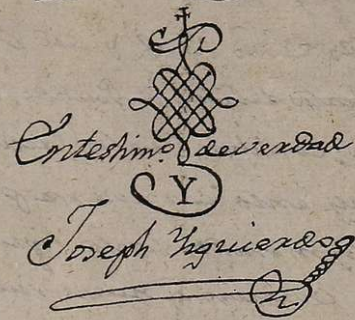 Entestim.o deverdad
Y
Joseph Yzquierdo